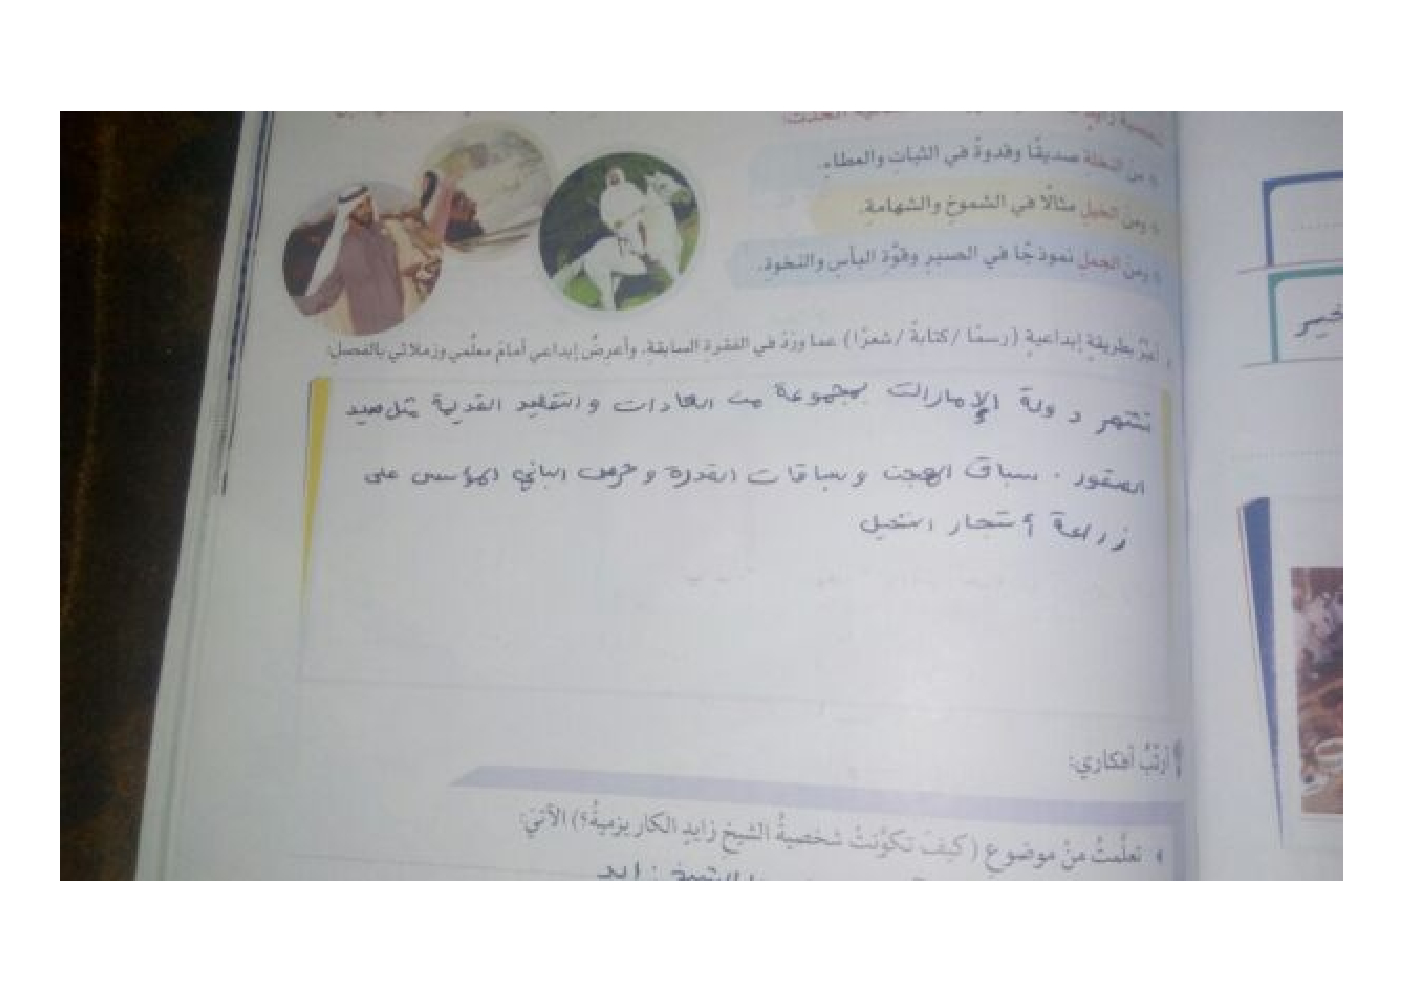 من النخلة صديقًا وقدوةً في الثبات والعطاء.
ومن الخيل مثالًا في الشموخ والشهامة.
ومن الجمل نموذجًا في الصبر وقوّة البأس والنخوة.
أعبّر بطريقة إبداعية (رسمًا /كتابةً /شعرًا) عما ورد في الفقرة السابقة، وأعرضُ إبداعي أمامَ معلّمي وزملائي بالفصل:
تشتهر دولة الإمارات بمجموعة من العادات والتقليد القديمة مثل صيد
الصقور . سباق الهجن وسباقات القدرة وحرص الباني المؤسس على
زراعة أشجار النخيل
أرتّبُ أفكاري:
تعلّمتُ منْ موضوع (كيفَ تكوّنتْ شخصيةُ الشيخ زايد الكاريزميةُ؟) الآتيَ:
الشيخ زايد
خير